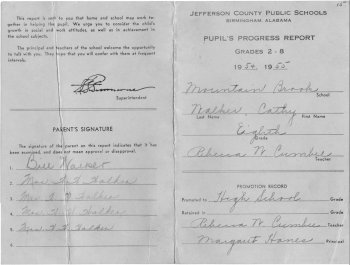 This report is sent to you that home and school may work to-
gether in helping the pupil. We urge you to consider the child's
growth in social and work attitudes, as well as in achievement
in the school subjects.
The principal and teachers of the school welcome the opportunity
to talk with you. They hope that you will confer with them at frequent
intervals.
Superintendent
PARENT'S SIGNATURE
The signature of the parent on this report indicates that it has
been examined, and does not mean approval or disapproval.
1. Bill Walker
2. Mrs. W. W. Walker
3. Mrs. W. W. Walker
4. Mrs. W. W. Walker
5. Mrs. W. W. Walker
JEFFERSON COUNTY PUBLIC SCHOOLS
BIRMINGHAM, ALABAMA
PUPIL'S PROGRESS REPORT
GRADES 2 - 8
1954 1955
Mountain Brook
School
Walker Cathy
Last Name First Name
Eighth
Grade
Rebecca W. Cumbee
Teacher
PROMOTION RECORD
Promoted to High School Grade
Retained in Grade
Rebecca W. Cumbee Teacher
Margaret Hanes Principal